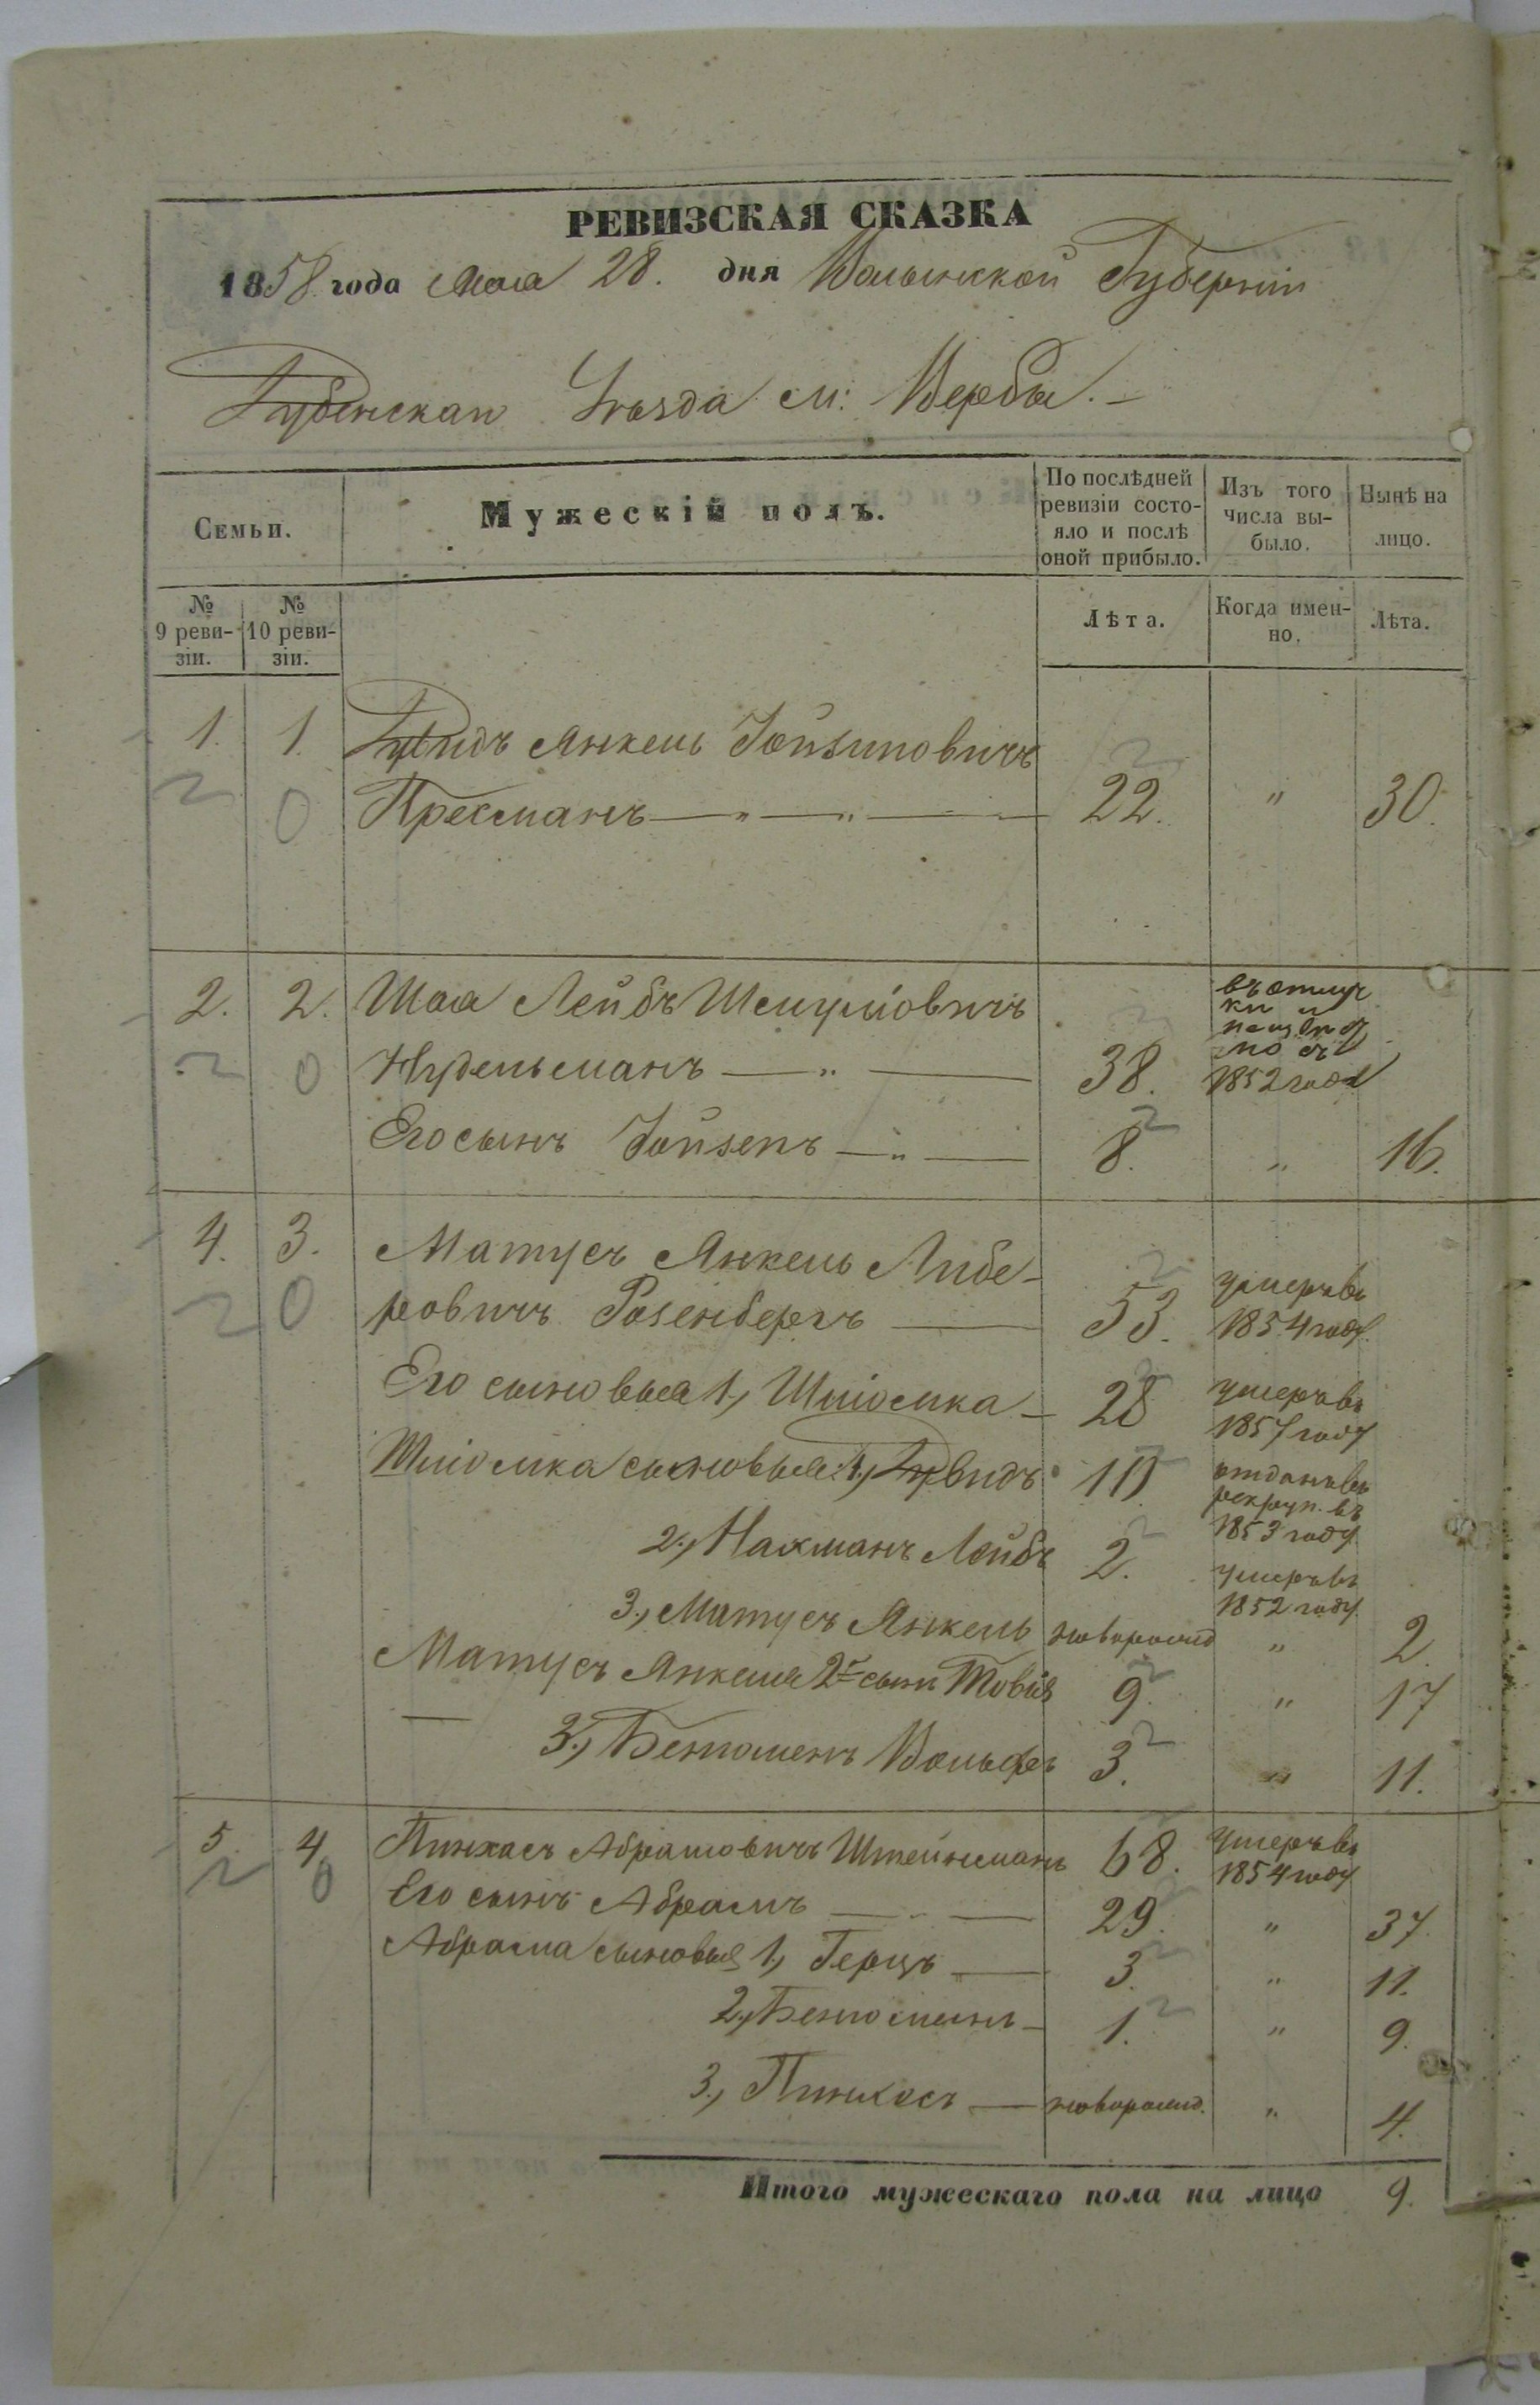 РЕВИЗСКАЯ СКАЗКА
1858 года Мая 28. дня Волынской Губерніи
Дубенскаго Уѣзда м: Вербы.
Семьи.
Мужескій полъ.
По послѣдней ревизіи состояло и послѣ оной прибыло.
Изъ того числа выбыло.
Нынѣ на лицо.
№ 9 ревизіи.
№ 10 ревизіи.
Лѣта.
Когда именно.
Лѣта.
1. 1. Дувидъ Янкель Іойзиповичъ
Пресманъ 22. " 30.
2. 2. Шая Лейбъ Шмулiовичъ
Нудельманъ 38. въ отлучки и неизвѣстно съ 1852 года
Его сынъ Іойзепъ 8. " 16.
4. 3. Матусъ Янкель Либе-
ровичъ Розенбергъ 53. умеръ въ 1854 году.
Его сыновья 1, Шліомка 28 умеръ въ 1857 году
Шліомка сыновья: 1, Дувидъ отданъ въ рекрут. въ 1853 году
2., Нахманъ Лейбъ 2. умеръ въ 1852 году.
3., Матусъ Янкель новорожд " 2.
Матусъ Янкеля 2й сынъ Товія 9. " 17
3., Беніоменъ Вольфъ 3. " 11.
5 4. Пинхасъ Абрамовичъ Штейнманъ 68. умеръ въ 1854 году
Его сынъ Абрамъ 29. " 37.
Абрама сыновья 1, Герцъ 3. " 11.
2, Беніоминъ 1. " 9.
3., Пинхасъ новорожд. " 4.
Итого мужескаго пола на лицо 9.